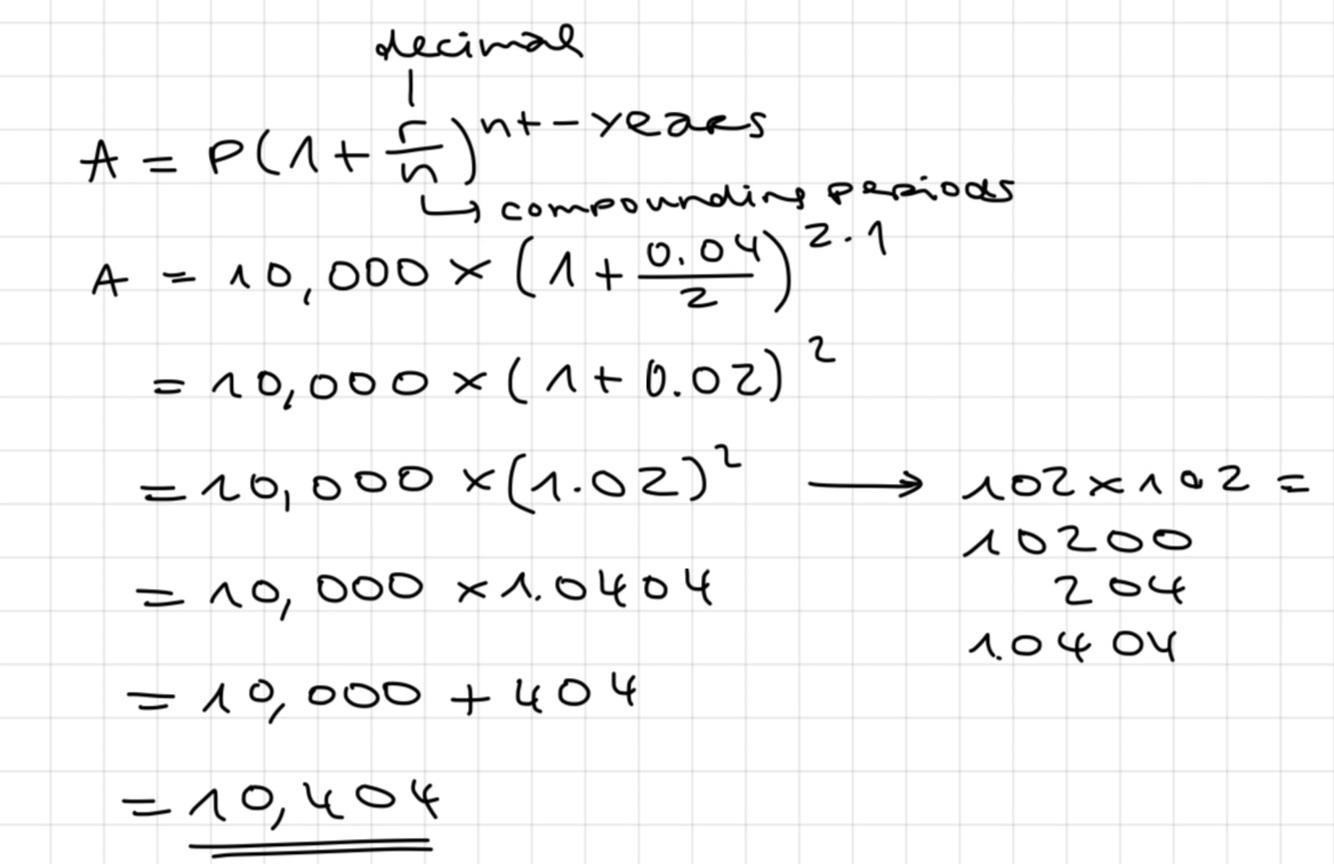 decimal
A = P(1 + r/n)^nt - years
→ compounding periods
A = 10,000 × (1 + 0.04/2)^2·1
= 10,000 × (1 + 0.02)^2
= 10,000 × (1.02)^2 → 102 × 102 =
10200
204
= 10,000 × 1.0404
1.0404
= 10,000 + 404
= 10,404